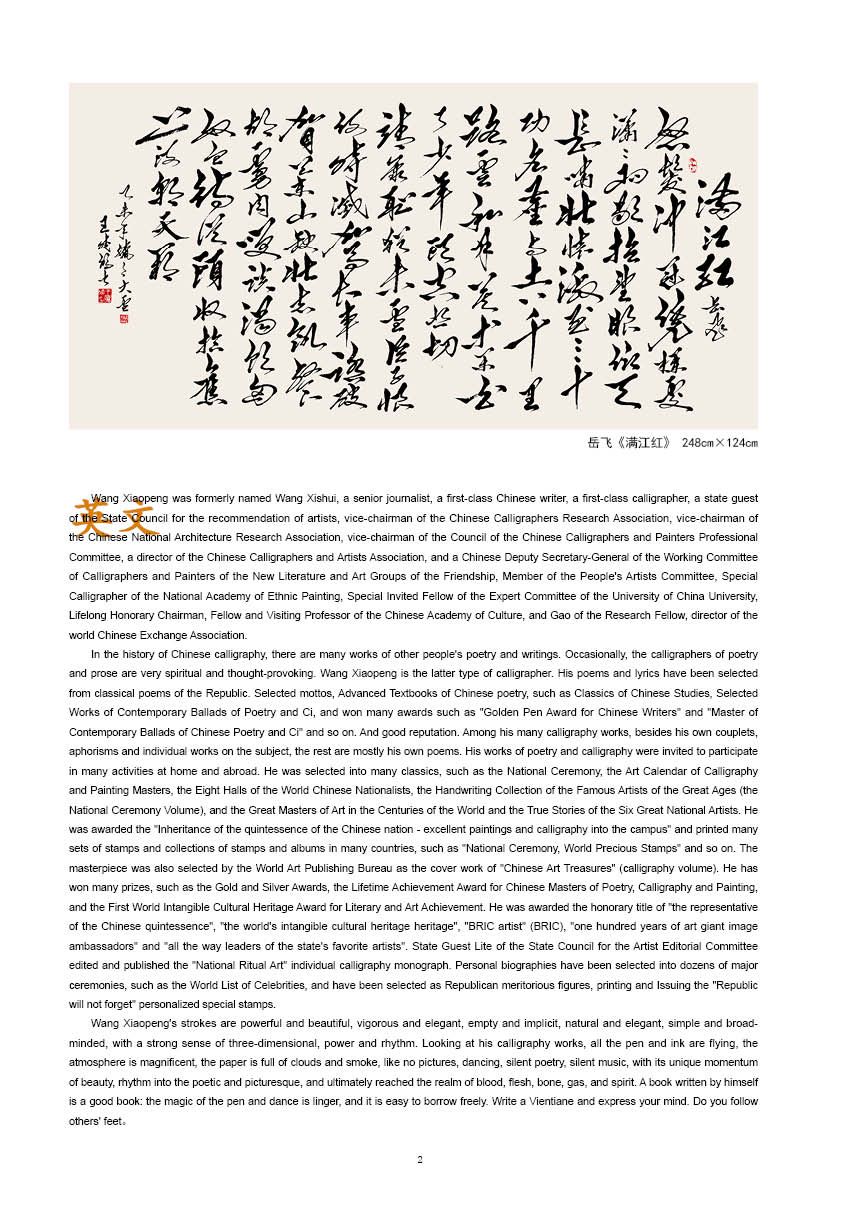 滿江紅 岳飛
怒髮沖冠憑欄處
瀟瀟雨歇抬望眼仰天
長嘯壯懷激烈三十
功名塵與土八千里
路雲和月莫等閒白
了少年頭空悲切
靖康恥猶未雪臣子恨
何時滅駕長車踏破
賀蘭山缺壯志飢餐
胡虜肉笑談渴飲匈
奴血待從頭收拾舊
山河朝天闕
乙未年
岳飞《满江红》 248cm×124cm
英文
Wang Xiaopeng was formerly named Wang Xishui, a senior journalist, a first-class Chinese writer, a first-class calligrapher, a state guest
of the State Council for the recommendation of artists, vice-chairman of the Chinese Calligraphers Research Association, vice-chairman of
the Chinese National Architecture Research Association, vice-chairman of the Council of the Chinese Calligraphers and Painters Professional
Committee, a director of the Chinese Calligraphers and Artists Association, and a Chinese Deputy Secretary-General of the Working Committee
of Calligraphers and Painters of the New Literature and Art Groups of the Friendship, Member of the People's Artists Committee, Special
Calligrapher of the National Academy of Ethnic Painting, Special Invited Fellow of the Expert Committee of the University of China University,
Lifelong Honorary Chairman, Fellow and Visiting Professor of the Chinese Academy of Culture, and Gao of the Research Fellow, director of the
world Chinese Exchange Association.
In the history of Chinese calligraphy, there are many works of other people's poetry and writings. Occasionally, the calligraphers of poetry
and prose are very spiritual and thought-provoking. Wang Xiaopeng is the latter type of calligrapher. His poems and lyrics have been selected
from classical poems of the Republic. Selected mottos, Advanced Textbooks of Chinese poetry, such as Classics of Chinese Studies, Selected
Works of Contemporary Ballads of Poetry and Ci, and won many awards such as "Golden Pen Award for Chinese Writers" and "Master of
Contemporary Ballads of Chinese Poetry and Ci" and so on. And good reputation. Among his many calligraphy works, besides his own couplets,
aphorisms and individual works on the subject, the rest are mostly his own poems. His works of poetry and calligraphy were invited to participate
in many activities at home and abroad. He was selected into many classics, such as the National Ceremony, the Art Calendar of Calligraphy
and Painting Masters, the Eight Halls of the World Chinese Nationalists, the Handwriting Collection of the Famous Artists of the Great Ages (the
National Ceremony Volume), and the Great Masters of Art in the Centuries of the World and the True Stories of the Six Great National Artists. He
was awarded the "Inheritance of the quintessence of the Chinese nation - excellent paintings and calligraphy into the campus" and printed many
sets of stamps and collections of stamps and albums in many countries, such as "National Ceremony, World Precious Stamps" and so on. The
masterpiece was also selected by the World Art Publishing Bureau as the cover work of "Chinese Art Treasures" (calligraphy volume). He has
won many prizes, such as the Gold and Silver Awards, the Lifetime Achievement Award for Chinese Masters of Poetry, Calligraphy and Painting,
and the First World Intangible Cultural Heritage Award for Literary and Art Achievement. He was awarded the honorary title of "the representative
of the Chinese quintessence", "the world's intangible cultural heritage heritage", "BRIC artist" (BRIC), "one hundred years of art giant image
ambassadors" and "all the way leaders of the state's favorite artists". State Guest Lite of the State Council for the Artist Editorial Committee
edited and published the "National Ritual Art" individual calligraphy monograph. Personal biographies have been selected into dozens of major
ceremonies, such as the World List of Celebrities, and have been selected as Republican meritorious figures, printing and Issuing the "Republic
will not forget" personalized special stamps.
Wang Xiaopeng's strokes are powerful and beautiful, vigorous and elegant, empty and implicit, natural and elegant, simple and broad-
minded, with a strong sense of three-dimensional, power and rhythm. Looking at his calligraphy works, all the pen and ink are flying, the
atmosphere is magnificent, the paper is full of clouds and smoke, like no pictures, dancing, silent poetry, silent music, with its unique momentum
of beauty, rhythm into the poetic and picturesque, and ultimately reached the realm of blood, flesh, bone, gas, and spirit. A book written by himself
is a good book: the magic of the pen and dance is linger, and it is easy to borrow freely. Write a Vientiane and express your mind. Do you follow
others' feet。
2